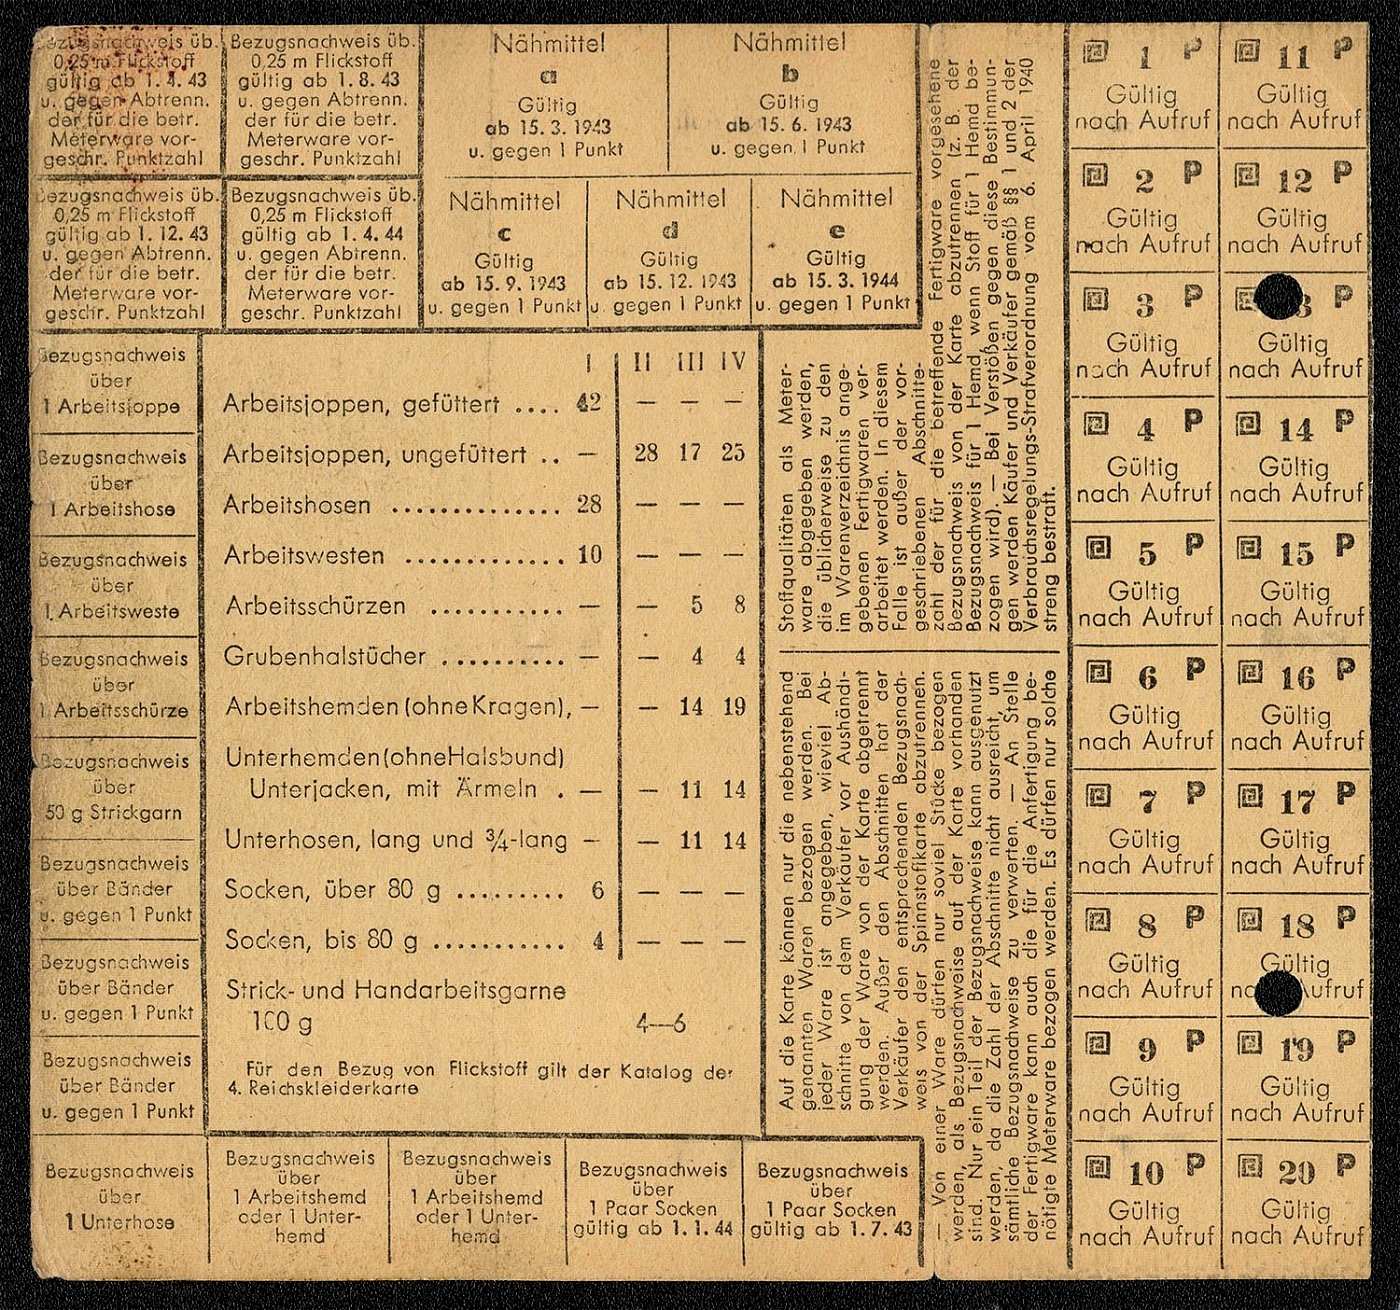 Bezugsnachweis üb.
0,25 m Flickstoff
gültig ab 1. 4. 43
u. gegen Abtrenn.
der für die betr.
Meterware vor-
geschr. Punktzahl
Bezugsnachweis üb.
0,25 m Flickstoff
gültig ab 1. 8. 43
u. gegen Abtrenn.
der für die betr.
Meterware vor-
geschr. Punktzahl
Nähmittel
a
Gültig
ab 15. 3. 1943
u. gegen 1 Punkt
Nähmittel
b
Gültig
ab 15. 6. 1943
u. gegen 1 Punkt
Bezugsnachweis üb.
0,25 m Flickstoff
gültig ab 1. 12. 43
u. gegen Abtrenn.
der für die betr.
Meterware vor-
geschr. Punktzahl
Bezugsnachweis üb.
0,25 m Flickstoff
gültig ab 1. 4. 44
u. gegen Abtrenn.
der für die betr.
Meterware vor-
geschr. Punktzahl
Nähmittel
c
Gültig
ab 15. 9. 1943
u. gegen 1 Punkt
Nähmittel
d
Gültig
ab 15. 12. 1943
u. gegen 1 Punkt
Nähmittel
e
Gültig
ab 15. 3. 1944
u. gegen 1 Punkt
Bezugsnachweis
über
1 Arbeitsjoppe
Bezugsnachweis
über
1 Arbeitshose
Bezugsnachweis
über
1 Arbeitsweste
Bezugsnachweis
über
1 Arbeitsschürze
Bezugsnachweis
über
50 g Strickgarn
Bezugsnachweis
über Bänder
u. gegen 1 Punkt
Bezugsnachweis
über Bänder
u. gegen 1 Punkt
Bezugsnachweis
über Bänder
u. gegen 1 Punkt
I II III IV
Arbeitsjoppen, gefüttert .... 42 — — —
Arbeitsjoppen, ungefüttert .. — 28 17 25
Arbeitshosen .............. 28 — — —
Arbeitswesten ............. 10 — — —
Arbeitsschürzen ........... — — 5 8
Grubenhalstücher .......... — — 4 4
Arbeitshemden (ohne Kragen), — — 14 19
Unterhemden (ohne Halsbund)
Unterjacken, mit Ärmeln . — — 11 14
Unterhosen, lang und ¾-lang — — 11 14
Socken, über 80 g ......... 6 — — —
Socken, bis 80 g ........... 4 — — —
Strick- und Handarbeitsgarne
100 g 4—6
Für den Bezug von Flickstoff gilt der Katalog der
4. Reichskleiderkarte
Bezugsnachweis
über
1 Unterhose
Bezugsnachweis
über
1 Arbeitshemd
oder 1 Unter-
hemd
Bezugsnachweis
über
1 Arbeitshemd
oder 1 Unter-
hemd
Bezugsnachweis
über
1 Paar Socken
gültig ab 1. 1. 44
Bezugsnachweis
über
1 Paar Socken
gültig ab 1. 7. 43
Auf die Karte können nur die nebenstehend
genannten Waren bezogen werden. Bei
jeder Ware ist angegeben, wieviel Ab-
schnitte von dem Verkäufer vor Aushändi-
gung der Ware von der Karte abgetrennt
werden. Außer den Abschnitten hat der
Verkäufer den entsprechenden Bezugsnach-
weis von der Spinnstoffkarte abzutrennen.
— Von einer Ware dürfen nur soviel Stücke bezogen
werden, als Bezugsnachweise auf der Karte vorhanden
sind. Nur ein Teil der Bezugsnachweise kann ausgenutzt
werden, da die Zahl der Abschnitte nicht ausreicht, um
sämtliche Bezugsnachweise zu verwerten. — An Stelle
der Fertigware kann auch die für die Anfertigung be-
nötigte Meterware bezogen werden. Es dürfen nur solche
Stoffqualitäten als Meter-
ware abgegeben werden,
die üblicherweise zu den
im Warenverzeichnis ange-
gebenen Fertigwaren ver-
arbeitet werden. In diesem
Falle ist außer der vor-
geschriebenen Abschnitte-
zahl der für die betreffende Fertigware vorgesehene
Bezugsnachweis von der Karte abzutrennen (z. B. der
Bezugsnachweis für 1 Hemd, wenn Stoff für 1 Hemd be-
zogen wird). — Bei Verstößen gegen diese Bestimmun-
gen werden Käufer und Verkäufer gemäß §§ 1 und 2 der
Verbrauchsregelungs-Strafverordnung vom 6. April 1940
streng bestraft.
1 P
Gültig
nach Aufruf
11 P
Gültig
nach Aufruf
2 P
Gültig
nach Aufruf
12 P
Gültig
nach Aufruf
3 P
Gültig
nach Aufruf
3 P
Gültig
nach Aufruf
4 P
Gültig
nach Aufruf
14 P
Gültig
nach Aufruf
5 P
Gültig
nach Aufruf
15 P
Gültig
nach Aufruf
6 P
Gültig
nach Aufruf
16 P
Gültig
nach Aufruf
7 P
Gültig
nach Aufruf
17 P
Gültig
nach Aufruf
8 P
Gültig
nach Aufruf
18 P
Gültig
Aufruf
9 P
Gültig
nach Aufruf
19 P
Gültig
nach Aufruf
10 P
Gültig
nach Aufruf
20 P
Gültig
nach Aufruf